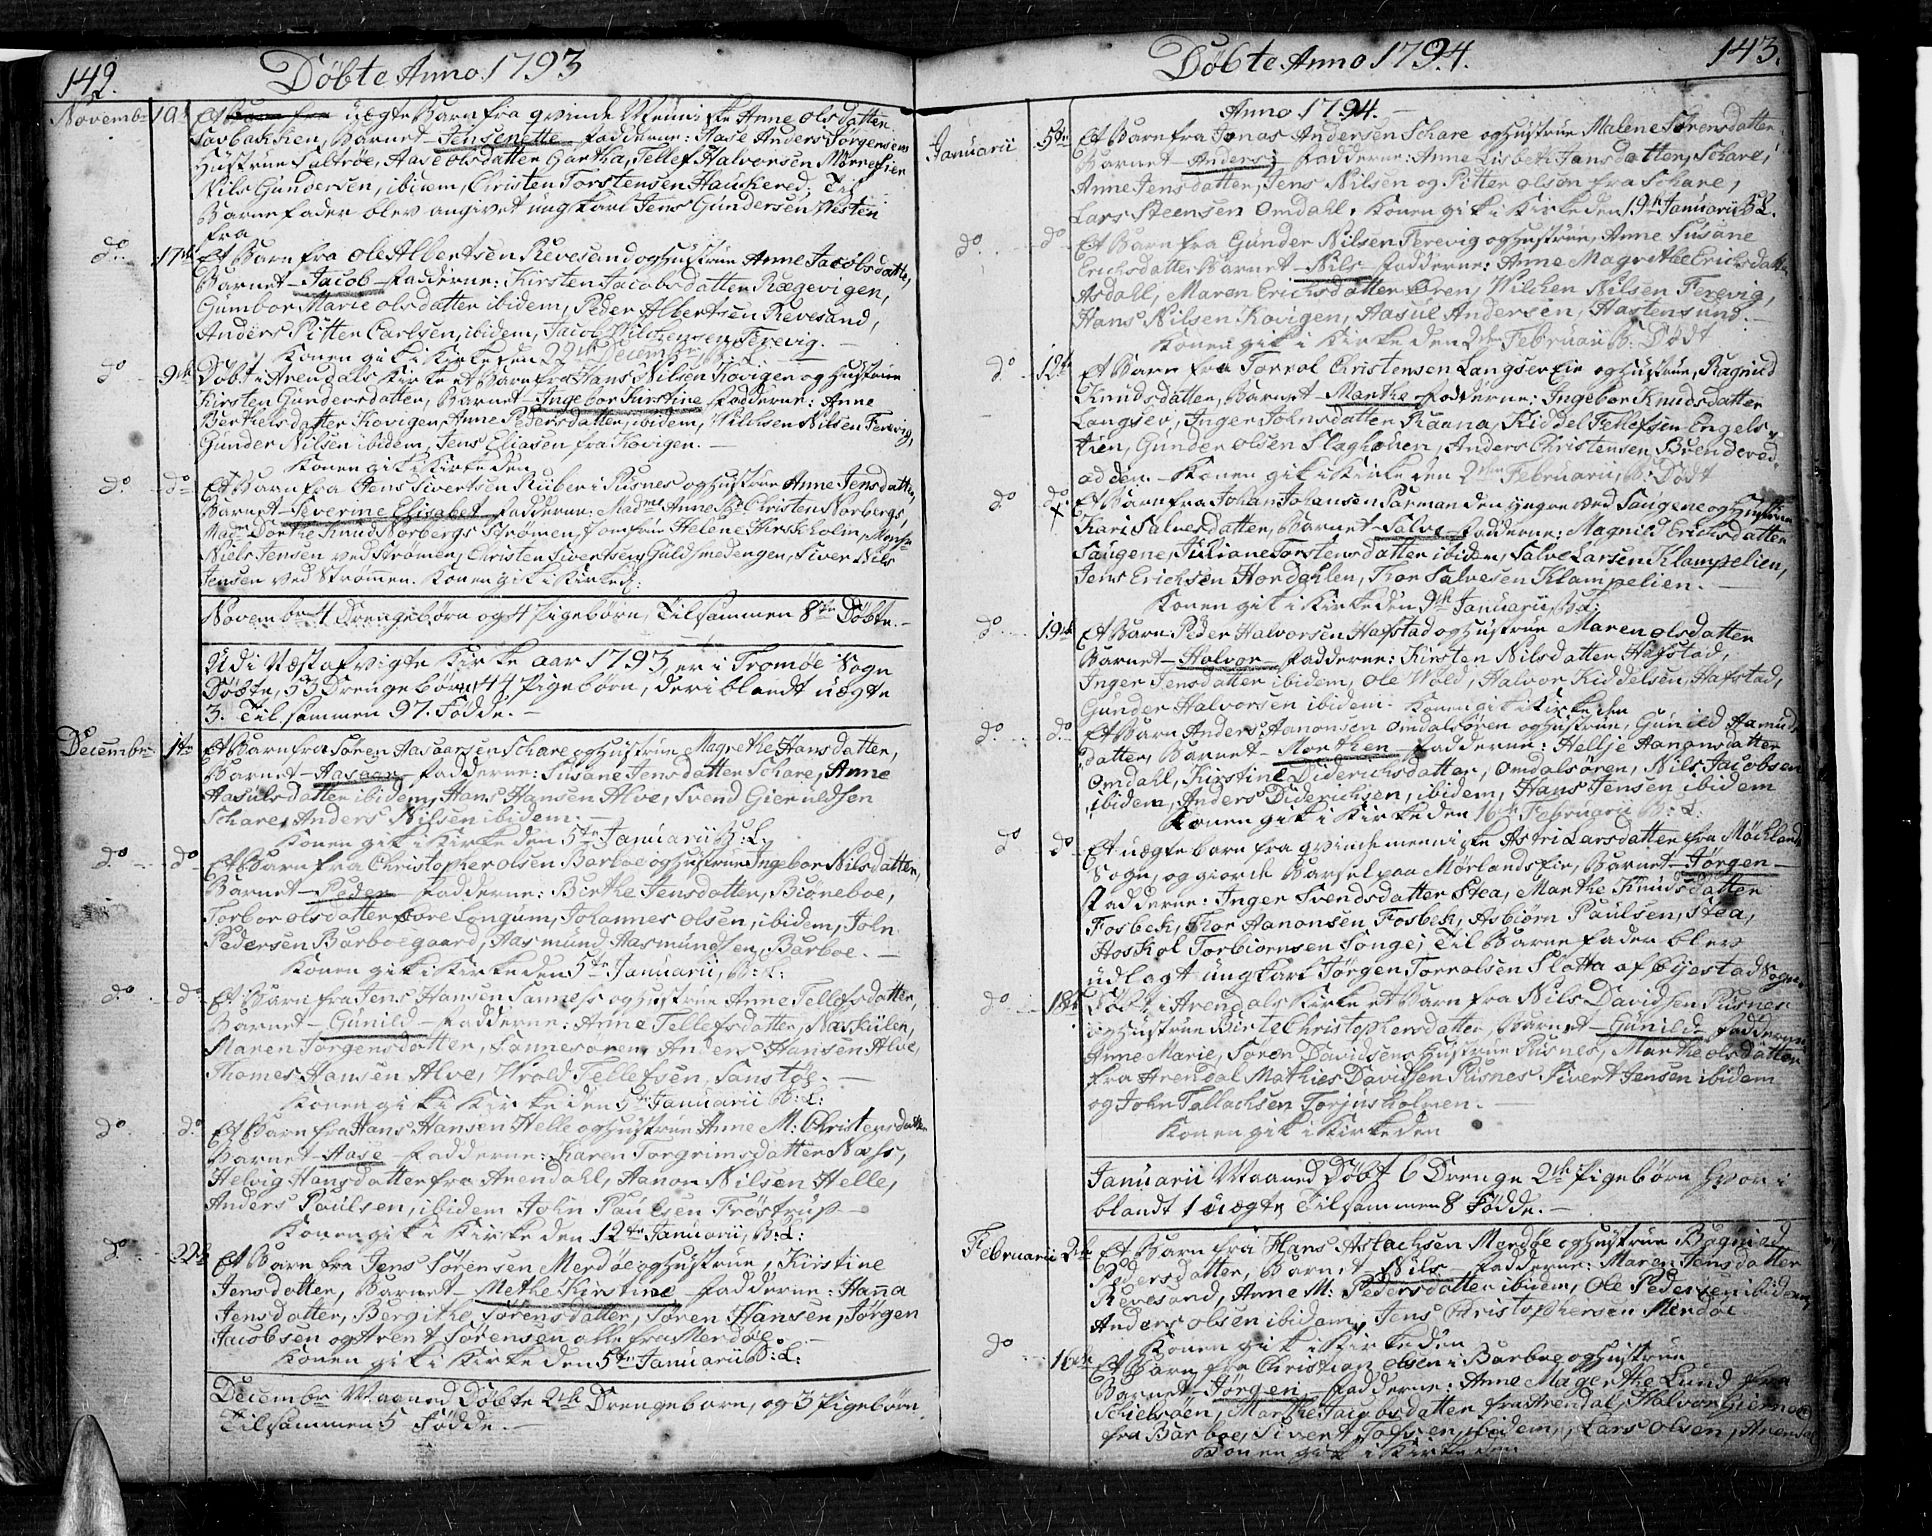 142.
Döbte Anno 1793
Novembr 10de Et Barn fra uægte Barn fra qvinde Menniske Anne olsdatter
Barnet – Jensenette – fadderne: Aase Anders Jørgensens
Hustrue Saltröe, Aase olsdatter Gartha, Tellef Halvorsen
Nils Gundersen, ibidem, Christen Torstensen Hauskered; Til
Barnefader blev angivet ungkarl Jens Gundersen Westen
fra
do 17de Et Barn fra Ole Albertsen Revesand og Hustrue Anne Jacobsdatter,
Barnet – Jacob – fadderne: Kirsten Jacobsdatter Rægevigen,
Gunbor Marie olsdatter ibidem, Peder Albertsen Revesand,
Anders Pitter Carlsen, ibidem, Jacob Wilchensen, Ferevig. –
Konen gik i Kirke den 22de Decembr, B: L:
do 9de Döbt i Arendals Kirke et Barn fra Hans Nilsen Kovigen og Hustrue
Kirsten Gundersdatter, Barnet – Ingebor Kirstine fadderne: Anne
Berthelsdatter Kovigen, Anne Pedersdatter, ibidem, Wilchen Nilsen Ferevig,
Gunder Nilsen ibidem, Jens Eliasen fra Kovigen. –
Konen gik i Kirke den
do do Et Barn fra Jens Sivertsen Rüber i Pusnes og Hustrue Anne Jensdatter,
Barnet – Severine Elisabet fadderne: Madme Anne Christen Norbergs,
Mad: Dorthe Knud Norbergs Strömen, Jomfrue Helene Hirschholm,
Niels Jensen ved Strömen, Christen Sivertsen, Guldsmedengen, Siver Nils
Jensen ved Strömmen. Konen gik i Kirke d:
Novembr 4 Drengebörn og 4 Pigebörn, Tilsammen 8te Döbte. –
Udi Næstafvigte Kirke aar 1793, er i Tromöe Sogn
Döbte, 53 Drengebörn, 44 Pigebörn, deriblandt uægte
3. Tilsammen 97. Födde. –
Decembr 1te Et Barn fra Sören Aasaarsen Schare og Hustrue Magrethe Hansdatter,
Barnet – Aasaar – fadderne: Susane Jensdatter Schare, Anne
Aasulsdatter ibidem, Hans Hansen Alve, Svend Gieruldsen
Schare, Anders Nilsen ibidem. –
Konen gik i Kirke den 5te Januarii B: L:
do do Et Barn fra Christopher olsen Barboe og Hustrue Ingebor Nilsdatter,
Barnet – Peder – fadderne: Birthe Jensdatter, Biöneboe,
Torbor olsdatter fore Longum, Johannes olsen, ibidem, John
Pedersen Barboegaard, Aasmund Aasmundsen, Barboe. –
Konen gik i Kirke den 5te Januarii, B: L:
do do Et Barn fra Jens Hansen Sanness og Hustrue Anne Tellefsdatter,
Barnet – Gunild – fadderne: Anne Tellefsdatter, Naskilen,
Maren Jörgensdatter, Sannesoren, Anders Hansen Alve,
Thomes Hansen Alve, Wrold Tellefsen, Sanstöe. –
Konen gik i Kirke den 5te Januarii B: L:
do do Et Barn fra Hans Hansen Helle og Hustrue Anne M: Christensdatter
Barnet – Aase – fadderne: Karen Torgrimsdatter Næss,
Helvig Hansdatter fra Arendahl, Aanon Nilsen Helle,
Anders Poulsen, ibidem John Poulsen Fröstrup –
Konen gik i Kirke den 12te Januarii, B: L:
do 22de Et Barn fra Jens Sörensen Merdöe og Hustrue, Kirstine
Jensdatter, Barnet – Methe Kirstine – fadderne: Hanna
Jensdatter, Bergithe Sörensdatter, Sören Hansen, Jörgen
Jacobsen og Arent Sörensen alle fra Merdöe. –
Konen gik i Kirke den 5te Januarii B: L:
Decembr Maaned Döbte 2de Drengebørn, og 3 Pigebörn
Tilsammen 5 Födde. –
143.
Döbte Anno 1794.
Anno 1794. –
Januarii 5te Et Barn fra Jonas Andersen Schare og Hustrue Malene Sörensdatter,
Barnet – Anders; fadderne: Anne Lisbeth Jansdatter, Schare,
Anne Jensdatter, Jens Nilsen og Pitter olsen fra Schare,
Lars Steensen Omdahl. Konen gik i Kirke den 19de Januarii B: L.
do do Et Barn fra Gunder Nilsen Ferevig og Hustrue, Anne Susane
Erichsdatter, Barnet – Nils – fadderne: Anne Magrethe Erichsdatter
Asdahl, Maren Erichsdatter Ören, Wilchen Nilsen Ferevig,
Hans Nilsen Kovigen, Aasul Andersen, Hastensund. –
Konen gik i Kirke den 2den Februarii B: Dödt
do 12te Et Barn fra Torrol Christensen Langsev Eie og Hustrue, Ragnild
Knudsdatter, Barnet – Marthe fadderne: Ingebor Knudsdatter
Langsev, Inger Johnsdatter Ranna, Kiddel Tellefsen Engels-
tien, Gunder olsen Slaghöien, Anders Christensen, Brendered-
odden. – Konen gik i Kirke den 2den Februarii, B: Dödt
do do Et Barn fra Johan Johansen Parman den yngre ved Saugene og Hustrue
Kari Salvesdatter, Barnet – Salve – fadderne: Magnild Erichsdatter
Saugene, Juliane Torstensdatter ibidem, Salve Larsen Klampelien,
Jens Erichsen Hordahlen, Thor Salvesen Klampelien. –
Konen gik i Kirke den 9de Januarii, B: L:
do 19de Et Barn Peder Halvorsen Hafstad og Hustrue Maren olsdatter
Barnet – Halvor – fadderne: Kirsten Nilsdatter Hafstad,
Inger Jensdatter ibidem, Ole Wold, Halvor Kiddelsen, Hafstad,
Gunder Halvorsen ibidem. Konen gik i Kirke den
do do Et Barn Anders Aanonsen Omdalsören og Hustrue, Gunild Aamunds-
datter, Barnet – Morthen – fadderne: Hellje Aanonsdatter
Omdahl, Kirstine Diderichsdatter, Omdalsören, Nils Jacobsen
ibidem, Anders Diderichsen, ibidem, Hans Jensen ibidem
Konen gik i Kirke den 16de Februarii B: L:
do do Et uægte barn fra qvindemenniske Astri Larsdatter fra Möcklands
Sogn, og giorde Barsel paa Mörlands Eie, Barnet – Jörgen –
fadderne: Inger Svendsdatter Stea, Marthe Knudsdatter
Fosbek, Thor Aanonsen Fosbek, Asbiörn Paulsen, Stea,
Hoskol Torbiornsen Songe; Til Barnefader blev
udlagt ungkarl Jörgen Torrolsen Slotta af Öyestad Sogn.
do 18de Döbt i Arendals Kirke et Barn fra Nils Davidsen Pusnes
og Hustrue Birte Christophersdatter, Barnet – Gunild – fadderne
Anne Marie, Sören Davidsens Hustrue Pusnes, Marthe olsdatter
fra Arendal Mathies Davidsen Pusnes Sivert Jensen ibidem
og John Tallachsen Torjusholmen. –
Konen gik i Kirke den
Januarii Maaned Döbt 6 Drenge 2de Pigebörn hvori
blandt 1 uægte, Tilsammen 8 Födde. –
Februarii 2de Et Barn fra Hans Aslachsen Merdöe og Hustrue Bognild
Pedersdatter, Barnet – Nils – fadderne: Maren Jensdatter
Revesand, Anne M: Pedersdatter ibidem, Ole Pedersen ibidem,
Anders olsen ibidem, Jens Christophersen Merdöe
Konen gik i Kirke den
do 16de Et Barn fra Christian olsen i Barboe og Hustrue
Barnet – Jörgen – fadderne: Anne Magrethe Lund fra
Schielsöen, Marthe Jacobsdatter fra Arendal, Halvor
fra Barboe, Sivert ibidem, Lars olsen, Arendal
Konen gik i Kirke den